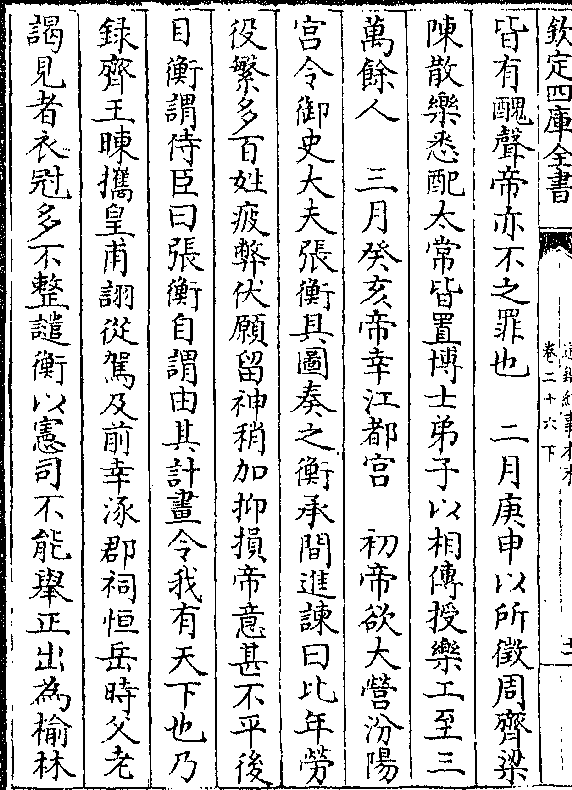 欽定四庫全書
通鑑紀事本末
卷二十六下
皆有醜聲帝亦不之罪也　二月庚申以所徵周齊梁
陳散樂悉配太常皆置博士弟子以相傳授樂工至三
萬餘人　三月癸亥帝幸江都宮　初帝欲大營汾陽
宮令御史大夫張衡具圖奏之衡承間進諫曰比年勞
役繁多百姓疲弊伏願留神稍加抑損帝意甚不平後
目衡謂侍臣曰張衡自謂由其計畫令我有天下也乃
録齊王暕攜皇甫詡從駕及前幸涿郡祠恒岳時父老
謁見者衣冠多不整譴衡以憲司不能舉正出為榆林